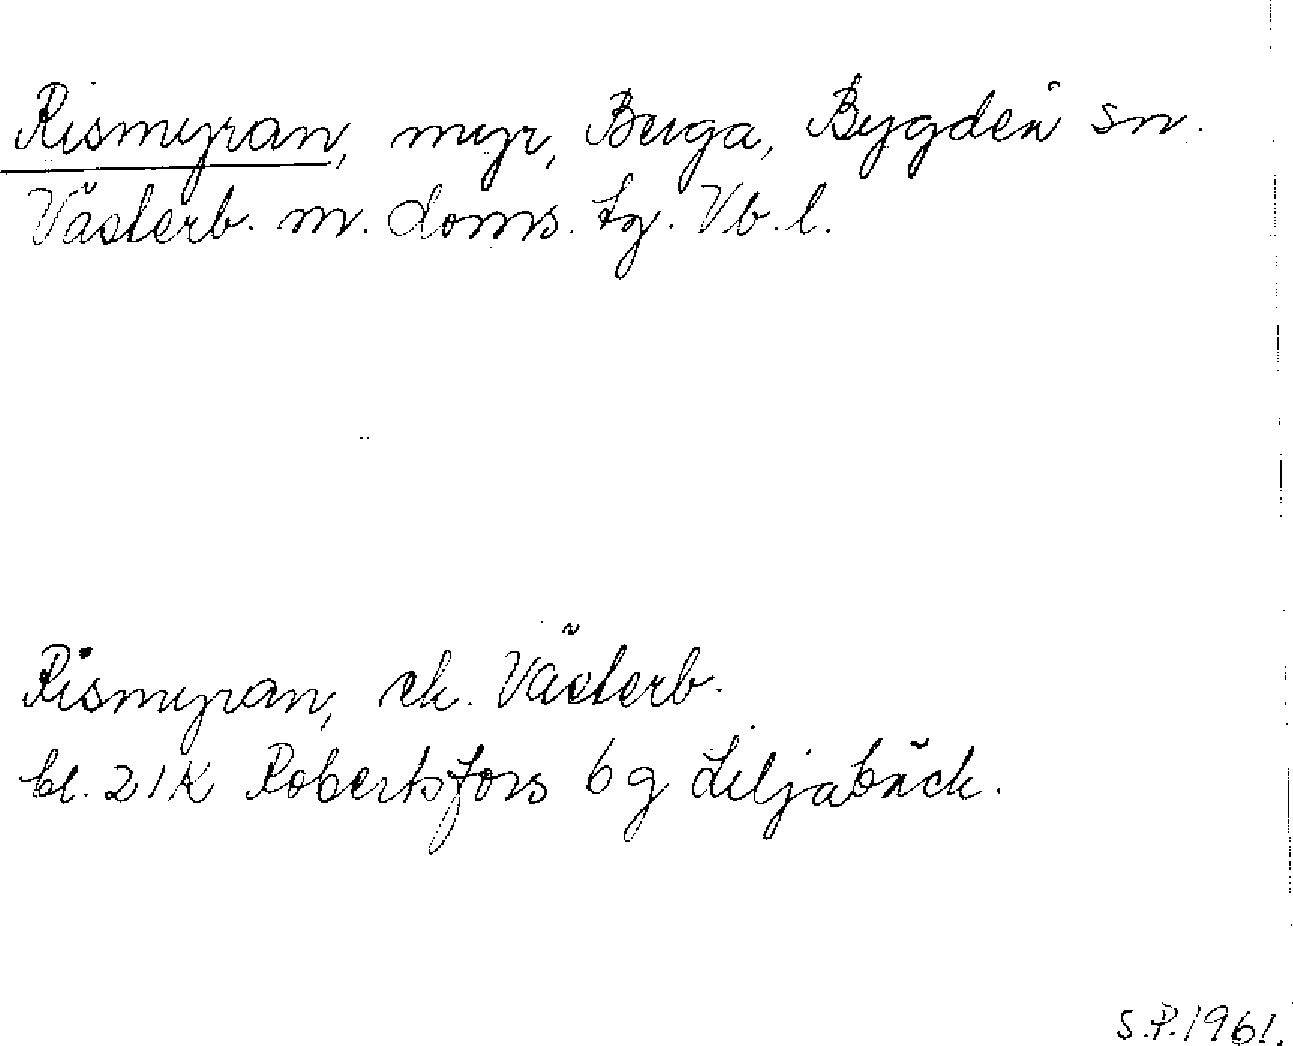 Rismyran, myr, Berga, Bygdeå sn.
Västerb. m. doms. tg. Vb. l.
Rismyran, ek. Västerb.
bl. 21K Robertsfors 6 g Liljabäck.
S.P. 1961.